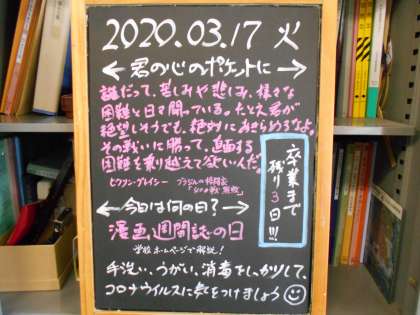 2020.03.17 火
←君の心のポケットに→
誰だって、苦しみや悲しみ、様々な
困難と日々闘っている。たとえ君が
絶望しそうでも、絶対にあきらめるなよ。
その戦いに勝って、直面する
困難を乗り越えて欲しいんだ。
ヒクソン・グレイシー ブラジルの格闘家
「400戦無敗」
←今日は何の日?→
漫画週間誌の日
学校ホームページで解説!
手洗い、うがい、消毒をしっかりして、
コロナウイルスに気をつけましょう
卒業まで
残り3日!!!